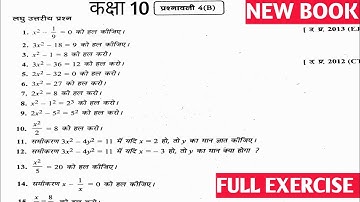 कक्षा 10 प्रश्नावली 4(B)
NEW BOOK
लघु उत्तरीय प्रश्न
1. x² − 1/9 = 0 को हल कीजिए।
[ उ. प्र. 2013 (EJ
2. 3x² − 18 = 9 को हल कीजिए।
3. 3x² − 1 = 8 को हल करो।
4. 3x² − 36 = 12 को हल करो।
5. 2x² − 32 = 0 को हल करो।
[ उ. प्र. 2012 (C
6. 3x² = 27 को हल करो।
7. 2x² = 8 को हल करो।
8. x² − 1² = 2³ को हल करो।
9. 2x² − 5² = 5² को हल करो।
10. x²/2 = 8 को हल करो।
11. समीकरण 3x² − 4y² = 11 में यदि x = 2 हो, तो y का मान ज्ञात कीजिए।
12. समीकरण 3x² − 4y² = 11 में यदि x = − 3 हो, तो y का मान क्या होगा ?
13. x²/5 = 20 को हल कीजिए।
14. समीकरण x − 1/x = 0 को हल कीजिए।
FULL EXERCISE
x = 8 को हल कीजिए।